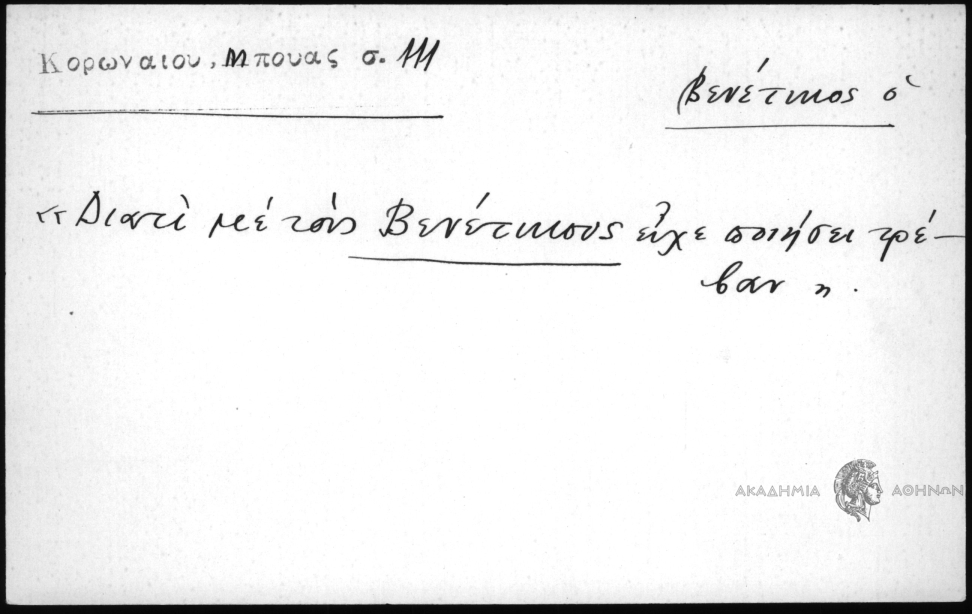 Κορωναιου, Μπουας σ. 111
Βενέτικος ὁ
«Διατὶ μὲ τοὺς Βενέτικους εἶχε ποιήσει τρέ–
βαν».
ΑΚΑΔΗΜΙΑ ΑΘΗΝΩΝ